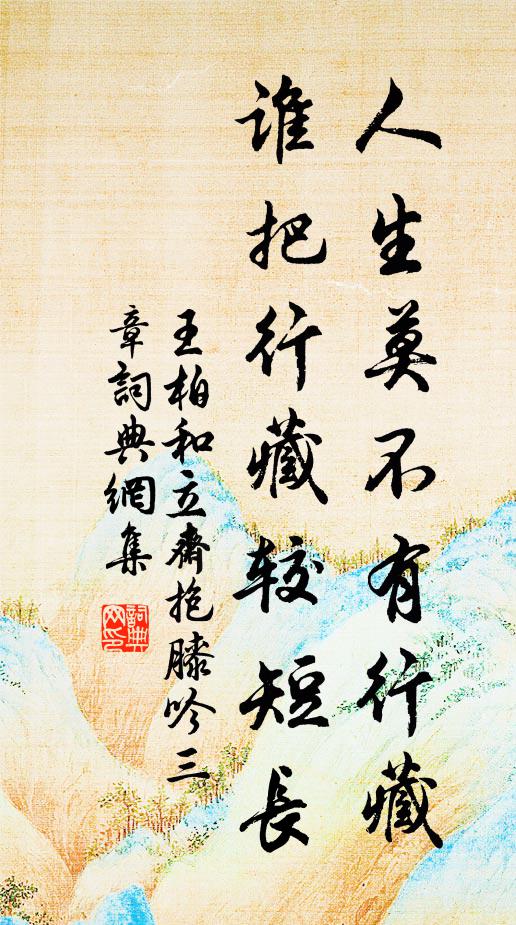 人生莫不有行藏
谁把行藏较短長
王柏和立齋抱膝吟三
章詞典網集
詞典网印